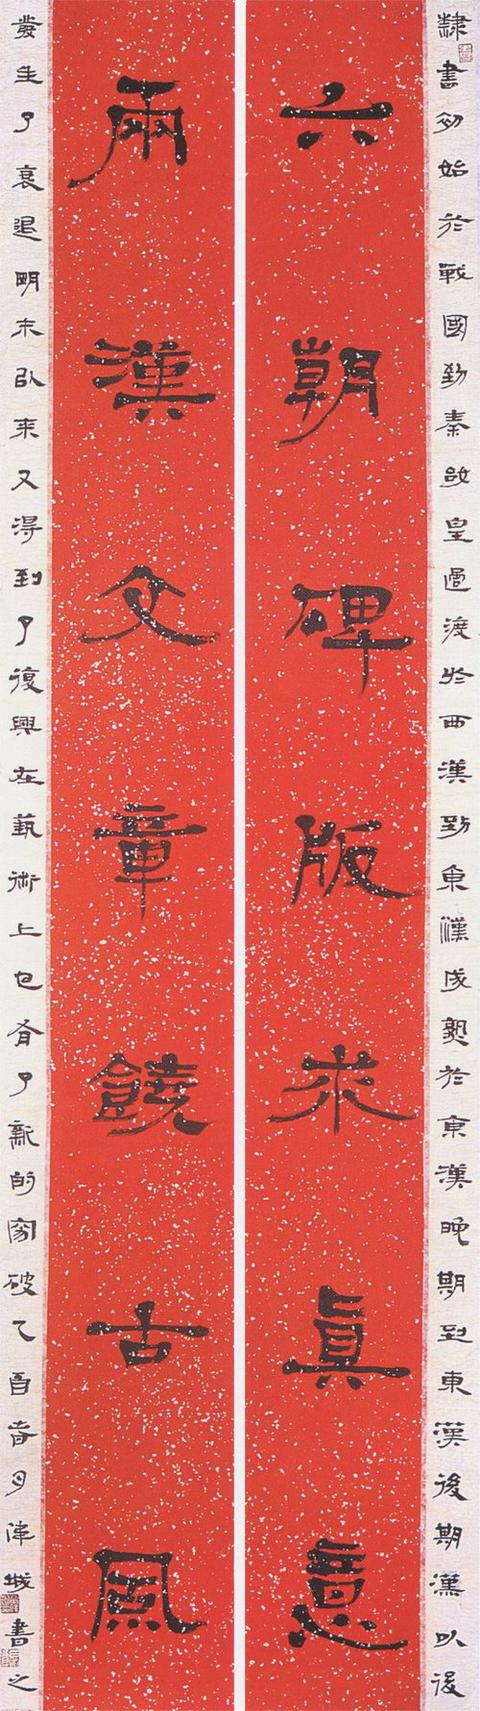 隸書初始於戰國到秦始皇過渡於西漢到東漢成熟於東漢晚期到東漢後期漢以後
六朝碑版求眞意
兩漢文章饒古風
發生了衰退明末以來又得到了復興在藝術上也有了新的突破乙酉春月津城書之